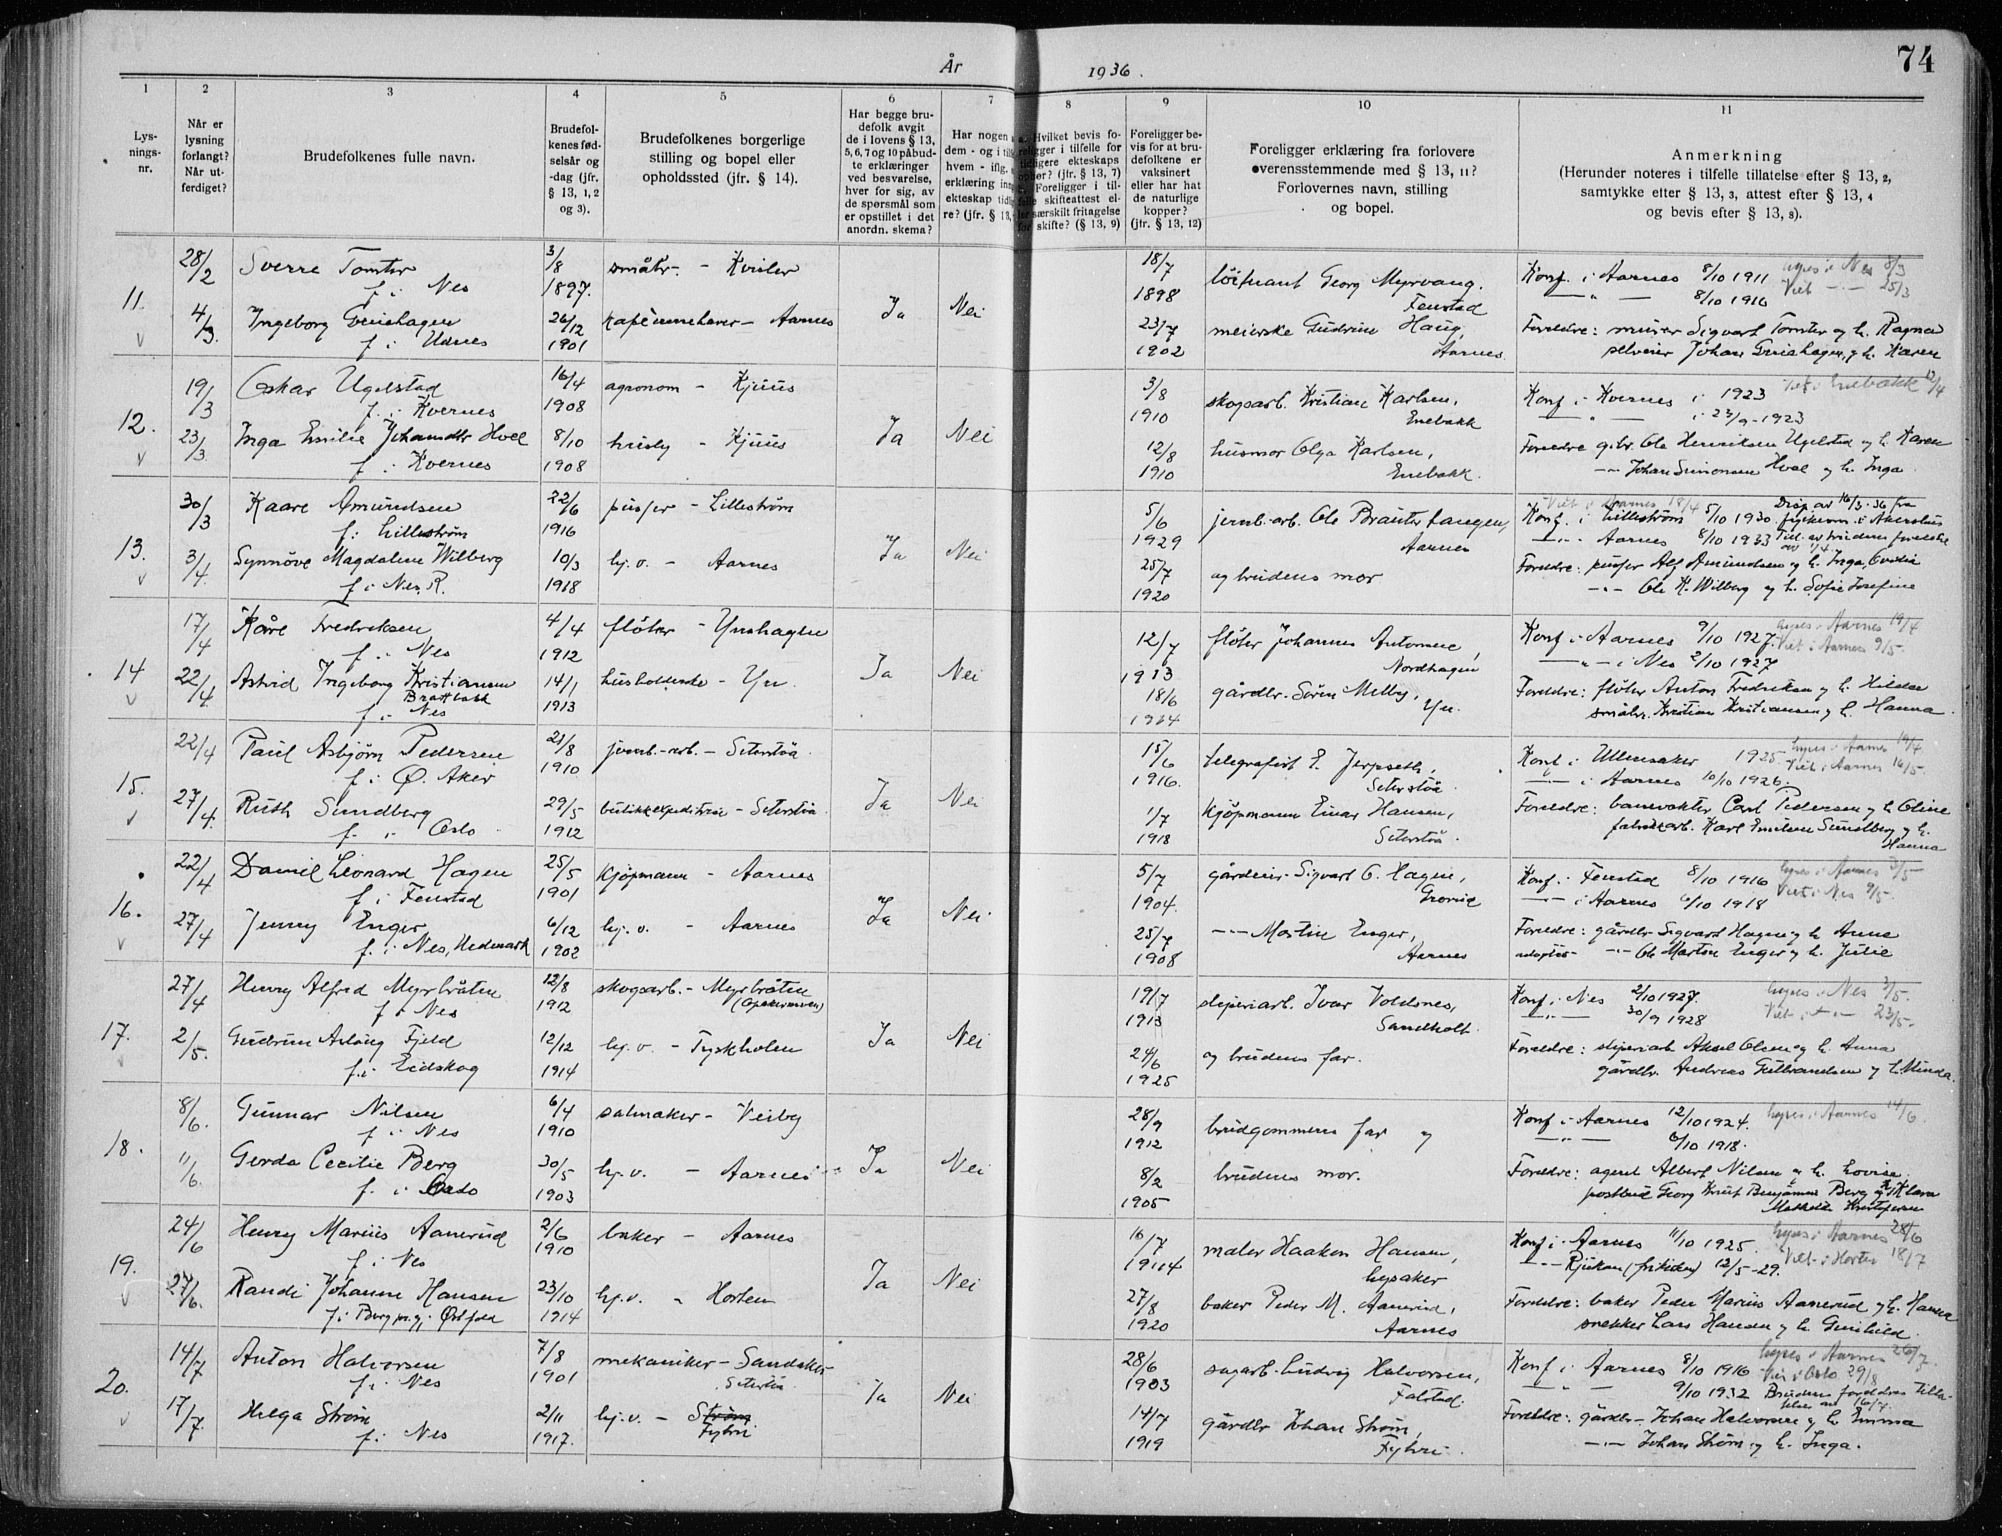 74
År 1936.
1 2 3 4 5 6 7 8 9 10 11
Lys-
nings-
nr.
Når er
lysning
forlangt?
Når ut-
ferdiget?
Brudefolkenes fulle navn.
Brudefol-
kenes fød-
selsår og
-dag (jfr.
§ 13, 1, 2
og 3).
Brudefolkenes borgerlige
stilling og bopel eller
opholdssted (jfr. § 14).
Har begge bru-
defolk avgit
de i lovens § 13,
5, 6, 7 og 10 påbud-
te erklæringer
ved besvarelse,
hver for sig, av
de spørsmål som
er opstillet i det
anordn. skema?
Har nogen
dem - og i
hvem - iflg.
erklæring
ekteskap
re? (jfr. § 13,
Hvilket bevis fo-
religger i tilfelle for
tidligere ekteskaps
ophør? (jfr. § 13, 7)
Foreligger i til-
felle skifteattest el-
ler særskilt fritagelse
for skifte? (§ 13, 9)
Foreligger be-
vis for at bru-
defolkene er
vaksinert
eller har hat
de naturlige
kopper?
(jfr. § 13, 12)
Foreligger erklæring fra forlovere
overensstemmende med § 13, 11?
Forlovernes navn, stilling
og bopel.
Anmerkning
(Herunder noteres i tilfelle tillatelse efter § 13, 2,
samtykke efter § 13, 3, attest efter § 13, 4
og bevis efter § 13, 8).
11. 28/2 Sverre Tomter 3/8 småbr. - Kvisler 18/7 Konf. i Aarnes 8/10 1911 Lyses i Nes 8/3
f. i Nes 1897. 1898 löitnant Georg Myrvang, Fenstad — " — 8/10 1916 Viet — " — 25/3
4/3. Ingeborg Grinihagen 26/12 kaféinnehaver - Aarnes Ja Nei 23/7 meierske Gudrun Haug, Foreldre: murer Sigvart Tomter og h. Ragna
f. i Udnes 1901 1902 Aarnes. selveier Johan Grinihagen og h. Karen
12. 19/3 Oskar Ugelstad 16/4 agronom - Kjuus 3/8 skogsarb. Kristian Karlsen, Konf. i Kvernes i 1923 Viet i Enebakk 12/4
f. i Kvernes 1908 1910 Enebakk " i 23/9 - 1923
23/3 Inga Emilie Johansdtr Hoel 8/10 husby - Kjuus Ja Nei 12/8 husmor Olga Karlsen, Foreldre g.br. Ole Henriksen Ugelstad og h. Karen
f. i Kvernes 1908 1910 Enebakk. — " — Johan Simonsen Hoel og h. Inga
13. 30/3 Kaare Amundsen 22/6 pusser - Lillestrøm 5/6 jernb.-arb. Ole Brauter Langen, Viet i Aarnes 18/4 Disp av 16/3-36 fra
f. i Lillestrøm 1916 1929 Aarnes Konf. i Lillestrøm 5/10 1930. fylkesm. i Akershus
3/4. Synnöve Magdalene Wilberg 10/3 hj. v. - Aarnes Ja Nei 25/7 og brudens mor — " — Aarnes 8/10 1933 Till. av brudens foreldre
f. i Nes, R. 1918 1920 Foreldre: pusser Alf Amundsen og h. Inga Cecilia
— " — Ole K. Wilberg og h. Sofie Josefine
14 17/4 Kåre Fredriksen 4/4 flöter - Ynshagen 12/7 flöter Johannes Antonsen, Konf i Aarnes 9/10 1927. Lyses i Aarnes 19/4
f. i Nes 1912 1913 Nordhagen — " — i Nes 2/10 1927 Viet i Aarnes 9/5.
22/4 Astrid Ingeborg Kristiansen 14/1 husholderske - Yn. Ja Nei 18/6 gårdbr. Søren Melby, Foreldre: flöter Anton Fredriksen og h. Hilda
Brattbakk f. i Nes 1913 1914 Yn. småbr. Kristian Kristiansen og h. Hanna.
15. 22/4 Paul Asbjørn Pedersen 21/8 jernb.-arb. - Seterstöa 15/6 telegrafist E. Jerpseth, Konf i Ullensaker 1925. Lyses i Aarnes 19/4
f. i Ø. Aker 1910 1916. Seterstöa — " — i Aarnes 10/10 1926. Viet i Aarnes 16/5.
27/4. Ruth Sundberg 29/5 butikkexpeditrise - Seterstöa Ja Nei 1/7 Kjöpmann Einar Hansen, Foreldre: banevokter Carl Pedersen og h Oline
f. i Oslo 1912 1918 Seterstöa. fabrikkarb. Karl Emilius Sundberg og h. Hanna
16. 22/4 Daniel Leonard Hagen 25/5 Kjöpmann - Aarnes 5/7 gårdeier - Sigvart G. Hagen, Konf. i Fenstad 8/10 1916 Lyses i Aarnes 3/5
f. i Fenstad 1901 1904. — " — i Aarnes 6/10 1918 Viet i Nes 9/5.
27/4 Jenny Enger 6/12 hj. v. - Aarnes Ja Nei 25/7 — " — Martin Enger, Foreldre: gårdbr Sigvard Hagen og h Anne
f. i Nes, Hedmark 1902 1908 Aarnes adoptiv- — " — Ole Martin Enger og h. Julie
17. 27/4 Henry Alfred Myrbråten 12/8 skogsarb. - Myrbråten 19/7 sliperiarb. Ivar Voldsnes, Konf. i Nes 2/10 1927. Lyses i Nes 3/5.
f. i Nes 1912 1913 Sandholt — " — 30/9 1928 Viet i — " — 23/5.
2/5. Gudrun Aslaug Fjeld 12/12 hj. v. - Tyskholen Ja Nei 24/6 og brudens far. Foreldre: sliperiarb Aksel Olsen og h. Anna
f. i Eidskog 1914 1925 gårdbr. Andreas Gulbrandsen og h. Minda.
18. 8/6. Gunnar Nilsen 6/4 salmaker - Veiby 28/9 brudgommens far og Konf i Aarnes 12/10 1924. Lyses i Aarnes 14/6
f. i Nes 1910 1912 — " — 6/10 1918.
11/6. Gerda Cecilie Berg 30/5 hj. v. - Aarnes Ja Nei 8/2 brudens mor. Foreldre: agent Albert Nilsen og h. Lovise
f. i Oslo 1903 1905 postbud Georg Knut Benjamin Berg og h. Klara
Mathilde Kristofersen
19. 24/6 Henry Marius Aamerud 2/6 baker - Aarnes 16/7 maler Haakon Hansen, Konf. i Aarnes 11/10 1925. Lyses i Aarnes 28/6
f. i Nes 1910 1914 Lysaker — " — Rjukan (frikirken) 12/5-29. Viet i Horten 18/7
27/6. Randi Johanne Hansen 23/10 hj. v. " Horten Ja Nei 27/8 baker Peder M. Aamerud, Foreldre: baker Peder Marius Aamerud og h. Hanna
f. i Berg pr.gj. Østfold 1914 1920 Aarnes snekker Lars Hansen og h Gunhild.
20. 14/7 Anton Halvorsen 7/8 mekaniker - Sandaker 28/6 sagarb. Ludvig Halvorsen, Konf i Aarnes 8/10 1916 Lyses i Aarnes 26/7.
f. i Nes 1901 Seterstöa 1903 Falstad. " " 9/10 1932 Viet i Oslo 29/8
17/7. Helga Strøm 2/11 hj. v. - Strøm Ja Nei 14/7 gårdbr Johan Strøm, Brudens foreldres tilla-
telse av 16/7.
f. i Nes 1917. Fylvi 1919 Fylvi. Foreldre: gårdbr - Johan Halvorsen og h Emma
— " — Johan Strøm og h. Inga.